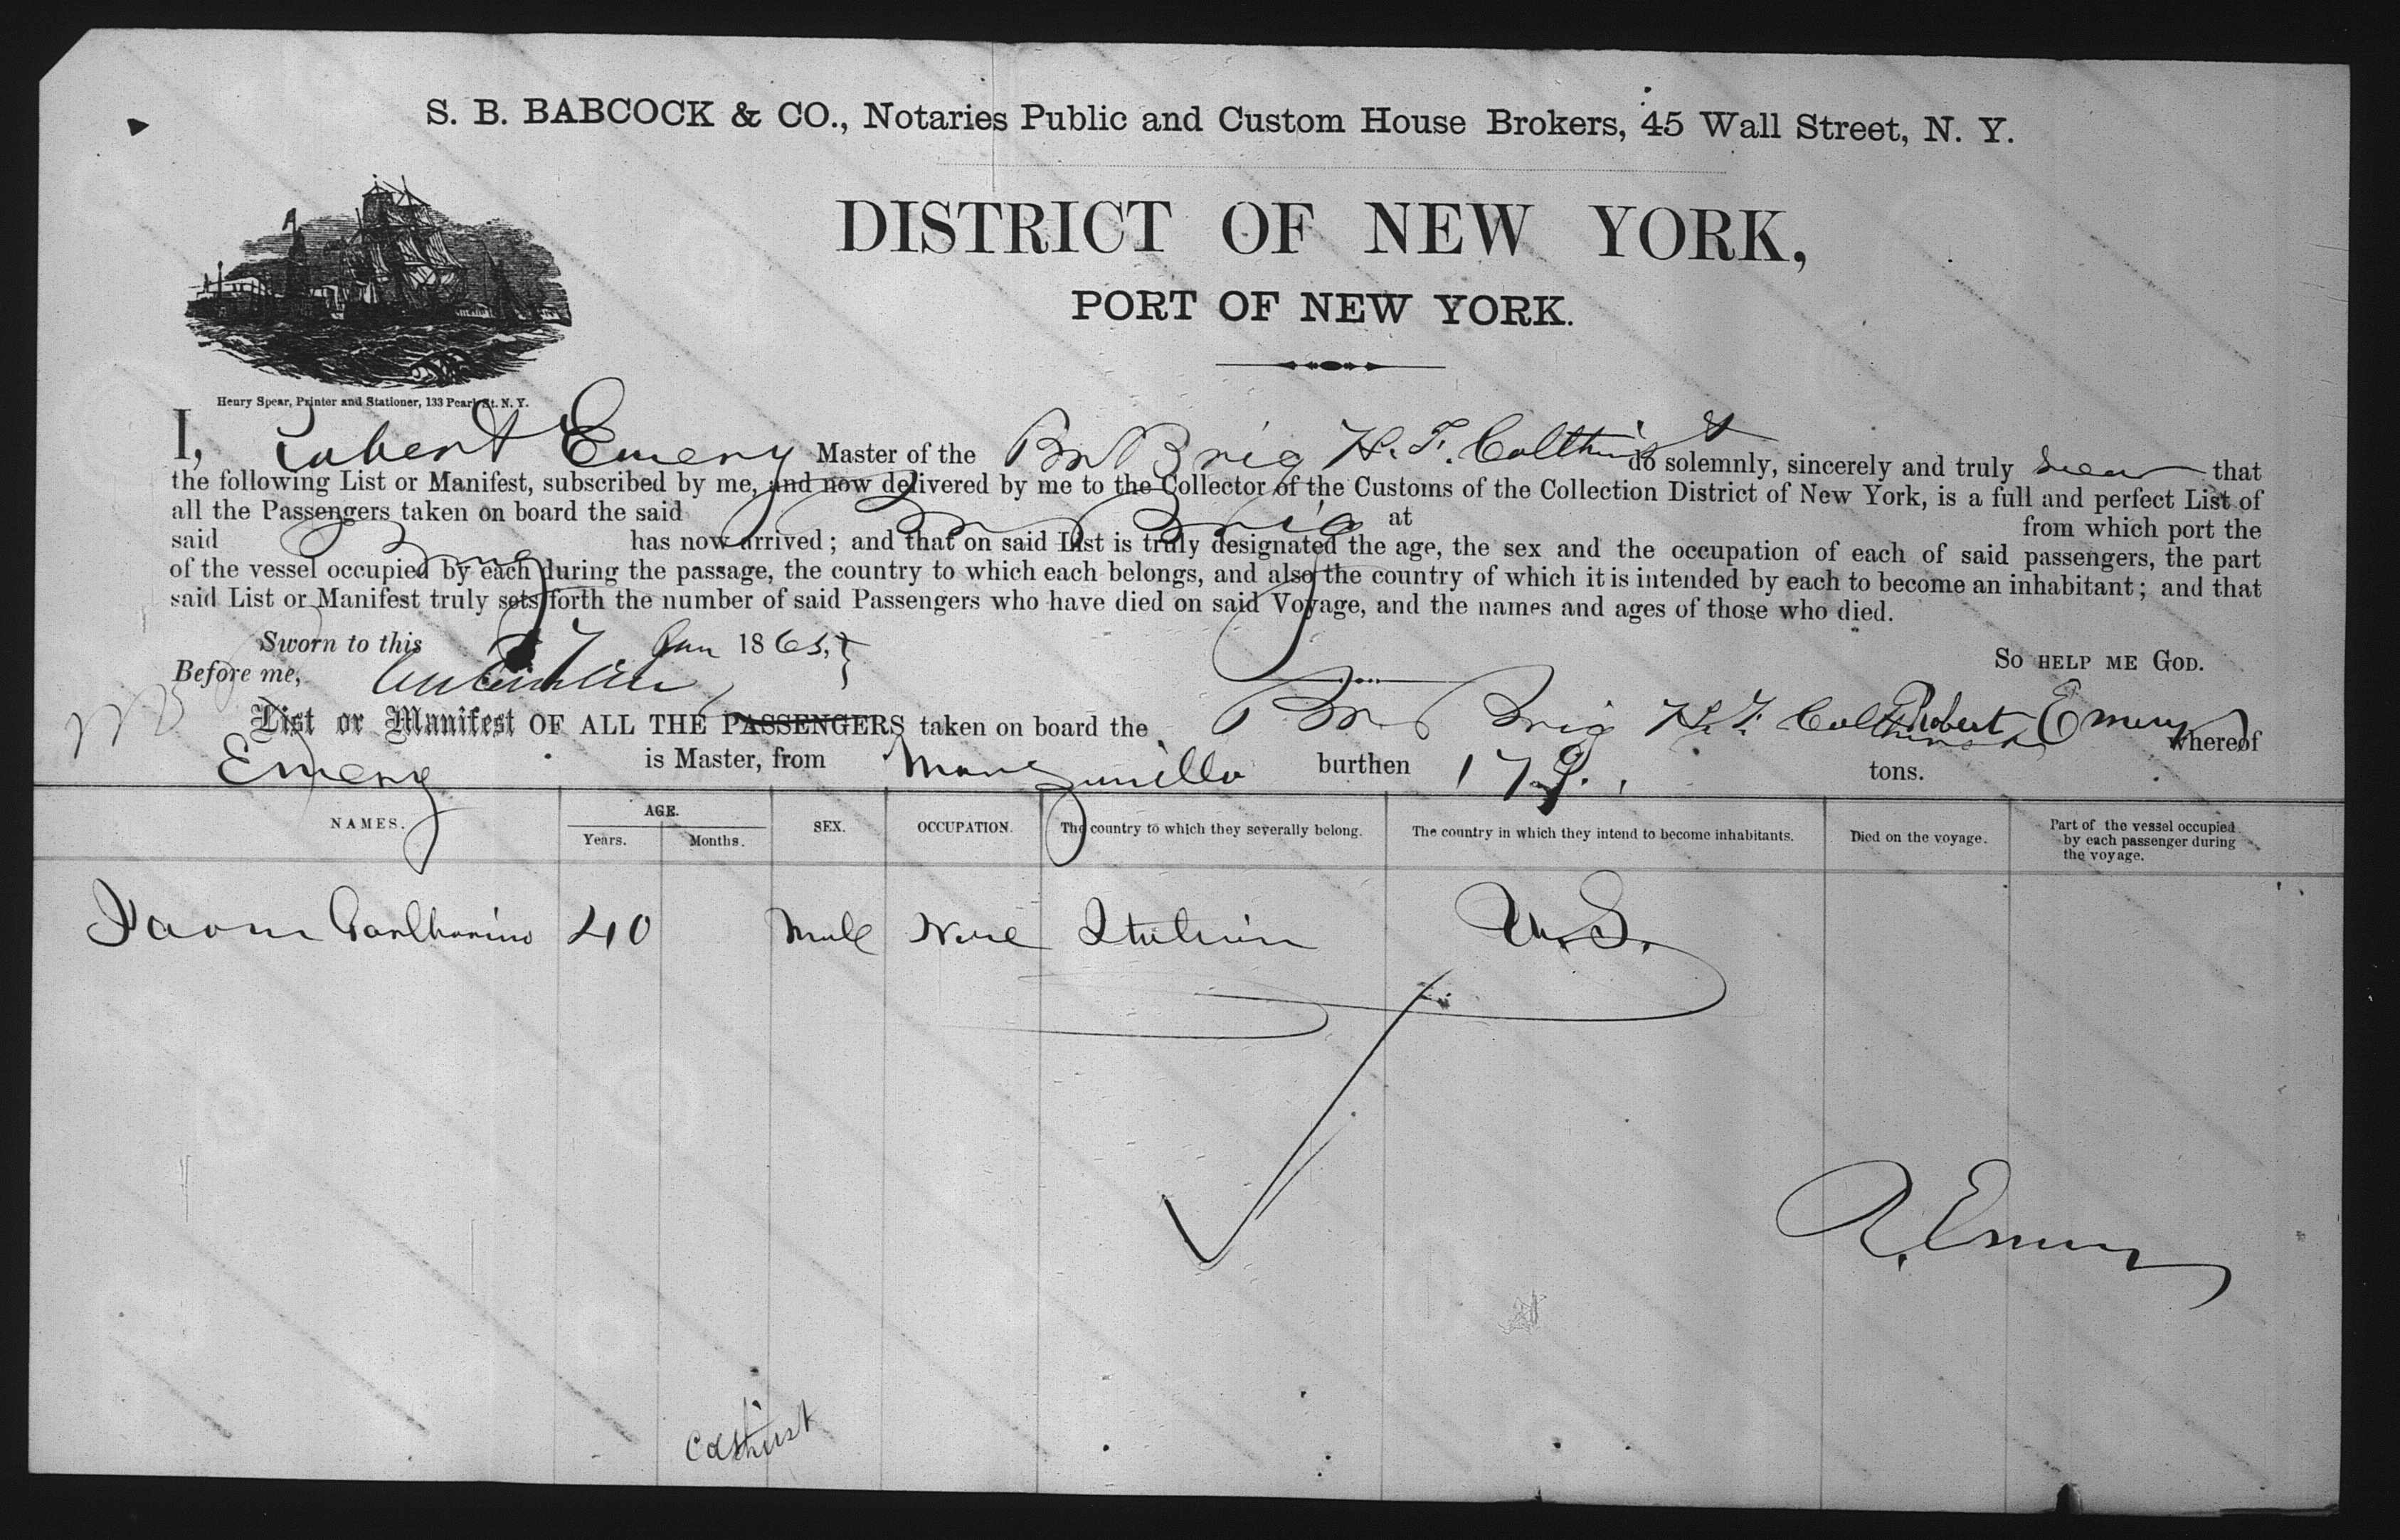 S. B. BABCOCK & CO., Notaries Public and Custom House Brokers, 45 Wall Street, N. Y.
DISTRICT OF NEW YORK,
PORT OF NEW YORK.
Henry Spear, Printer and Stationer, 133 Pearl St. N. Y.
I, Robert Emery Master of the Br Brig H. F. Colthirst do solemnly, sincerely and truly swear that
the following List or Manifest, subscribed by me, and now delivered by me to the Collector of the Customs of the Collection District of New York, is a full and perfect List of
all the Passengers taken on board the said Br Brig at from which port the
said Brig has now arrived; and that on said List is truly designated the age, the sex and the occupation of each of said passengers, the part
of the vessel occupied by each during the passage, the country to which each belongs, and also the country of which it is intended by each to become an inhabitant; and that
said List or Manifest truly sets forth the number of said Passengers who have died on said Voyage, and the names and ages of those who died.
Sworn to this 27 Jan 1865,
So HELP ME GOD.
Before me,
Robert Emery
List or Manifest OF ALL THE PASSENGERS taken on board the Br Brig H. F. Colthirst whereof
Emery is Master, from Manzanilla burthen 179. tons.
NAMES. AGE. Years. Months. SEX. OCCUPATION. The country to which they severally belong. The country in which they intend to become inhabitants. Died on the voyage. Part of the vessel occupied by each passenger during the voyage.
40 Male None Italian U.S.
R. Emery
Colthirst